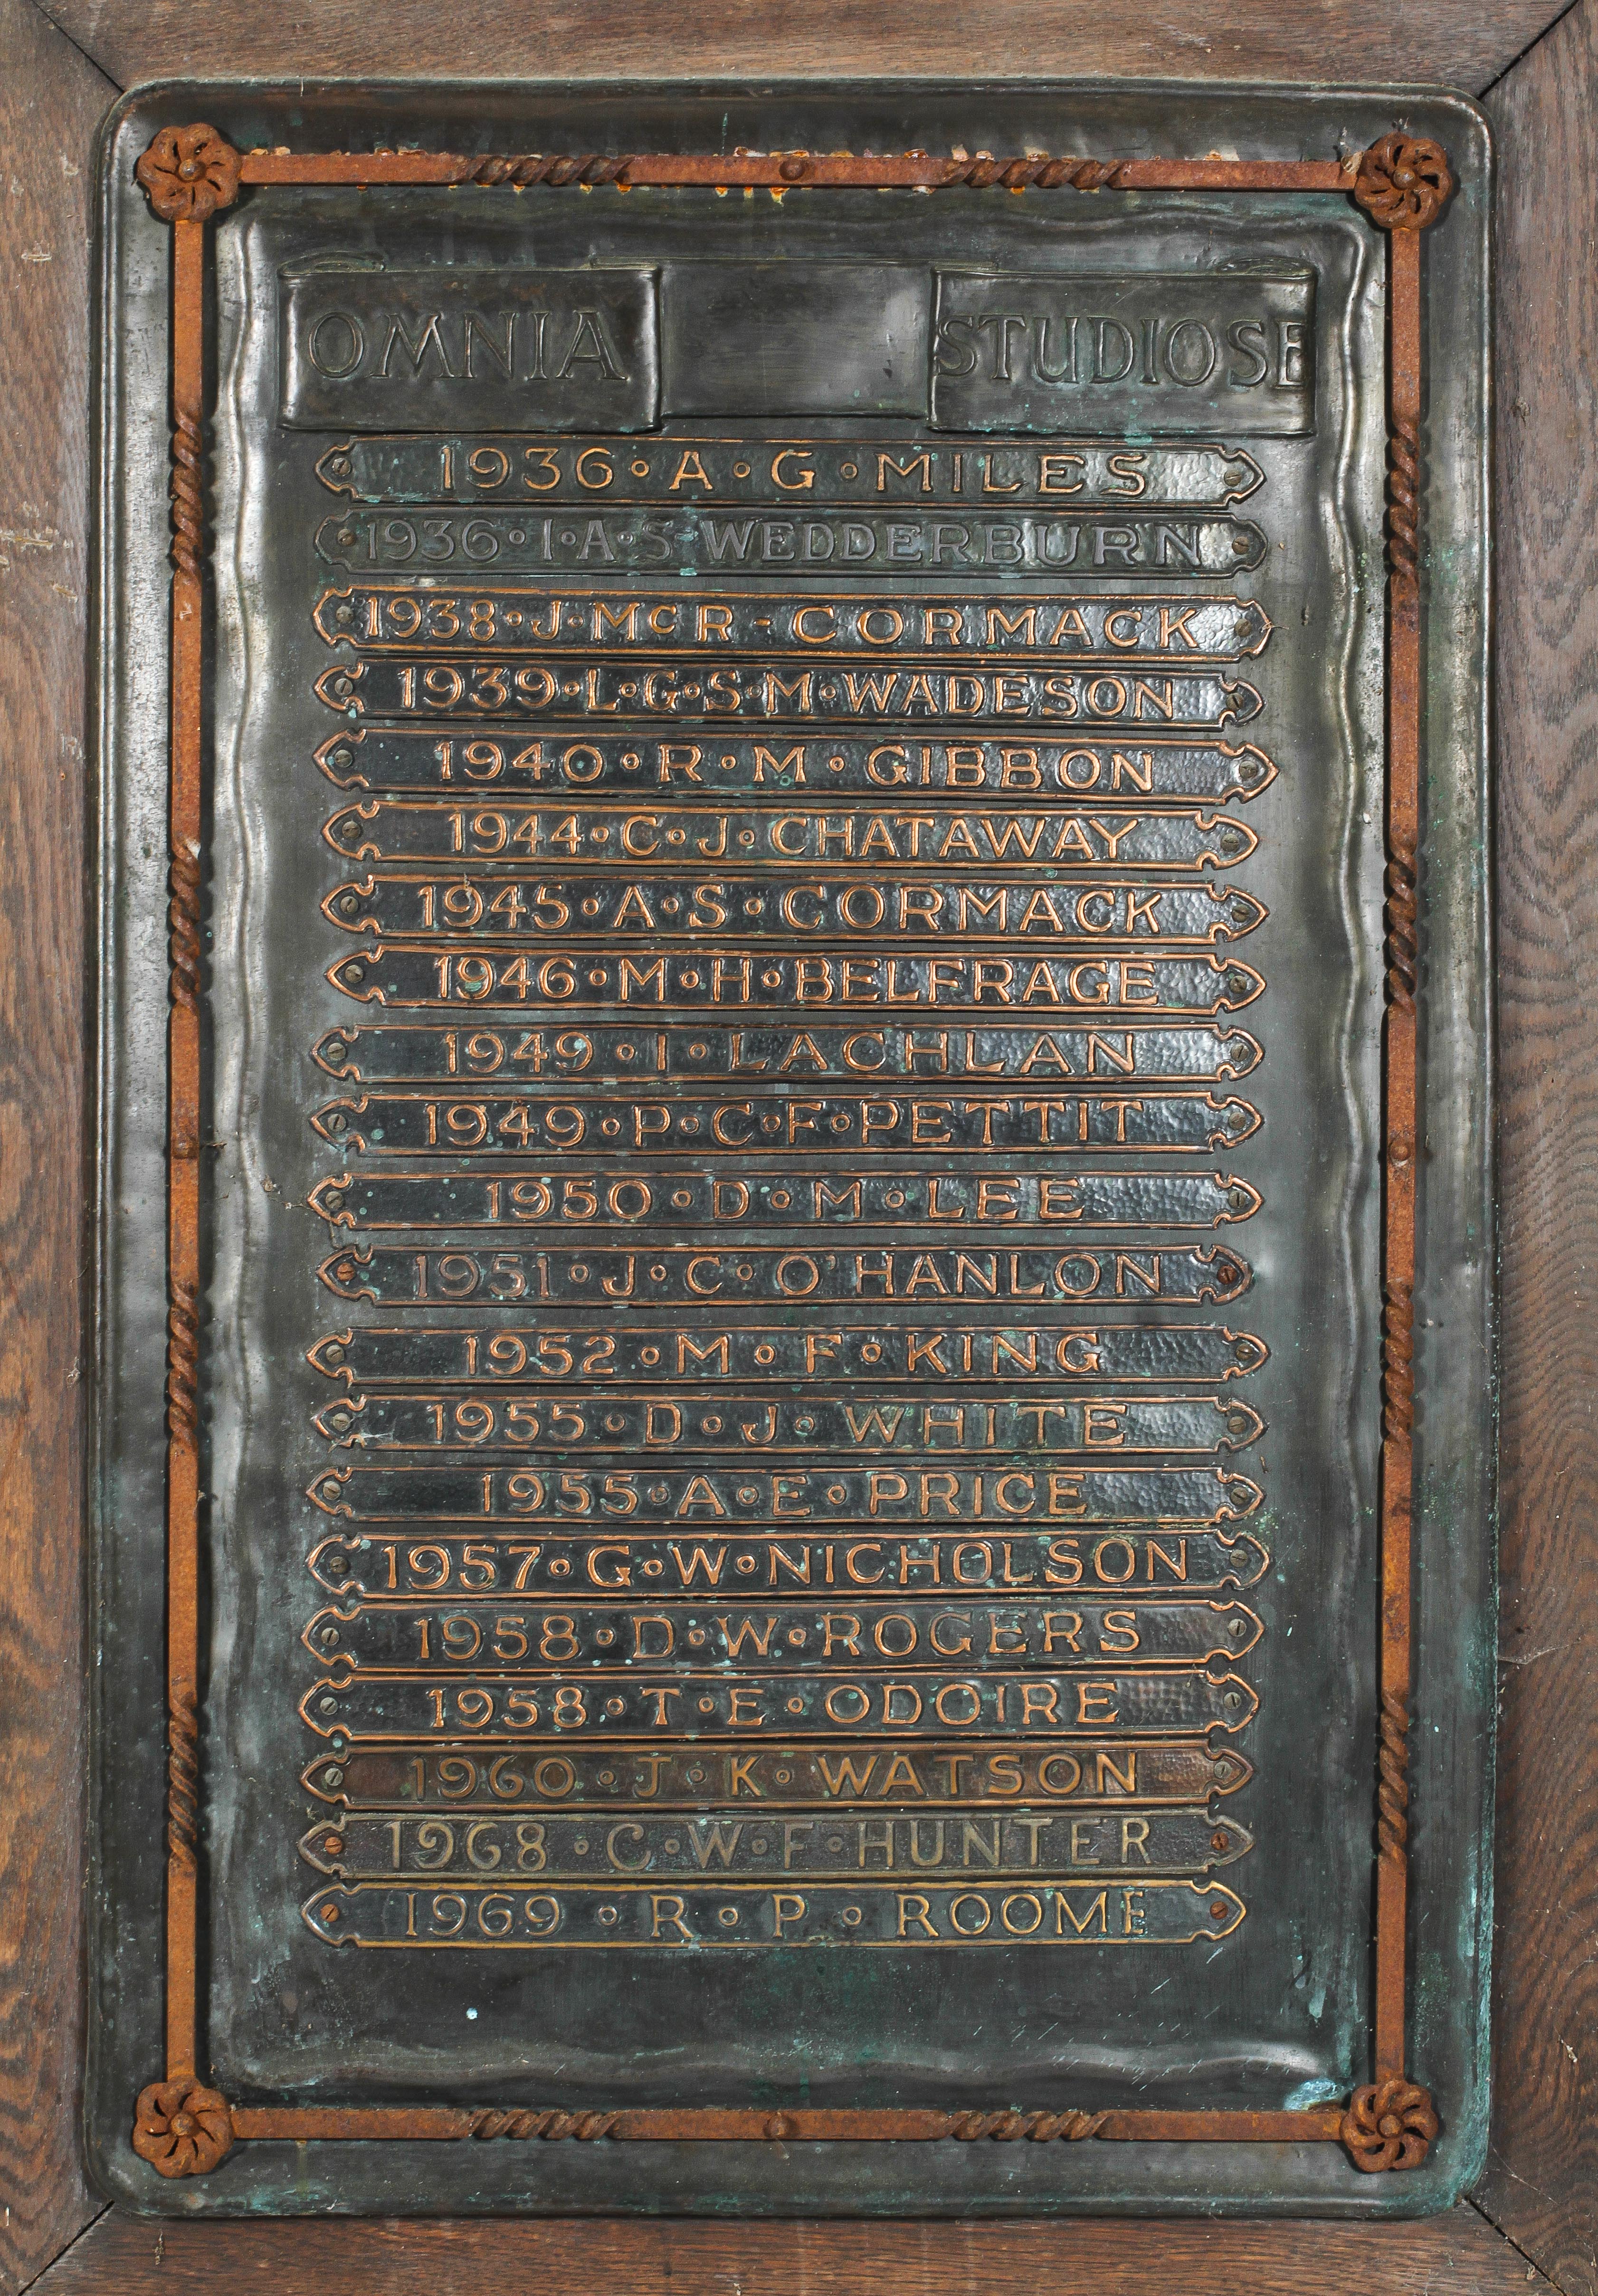 OMNIA STUDIOSE
1936 · A · G · MILES
1936 · I · A · S WEDDERBURN
1938 · J · McR - CORMACK
1939 · L · G · S · M · WADESON
1940 · R · M · GIBBON
1944 · C · J · CHATAWAY
1945 · A · S · CORMACK
1946 · M · H · BELFRAGE
1949 · I · LACHLAN
1949 · P · C · F · PETTIT
1950 · D · M · LEE
1951 · J · C · O'HANLON
1952 · M · F · KING
1955 · D · J · WHITE
1955 · A · E · PRICE
1957 · G · W · NICHOLSON
1958 · D · W · ROGERS
1958 · T · E · ODOIRE
1960 · J · K · WATSON
1968 · C · W · F · HUNTER
1969 · R · P · ROOME